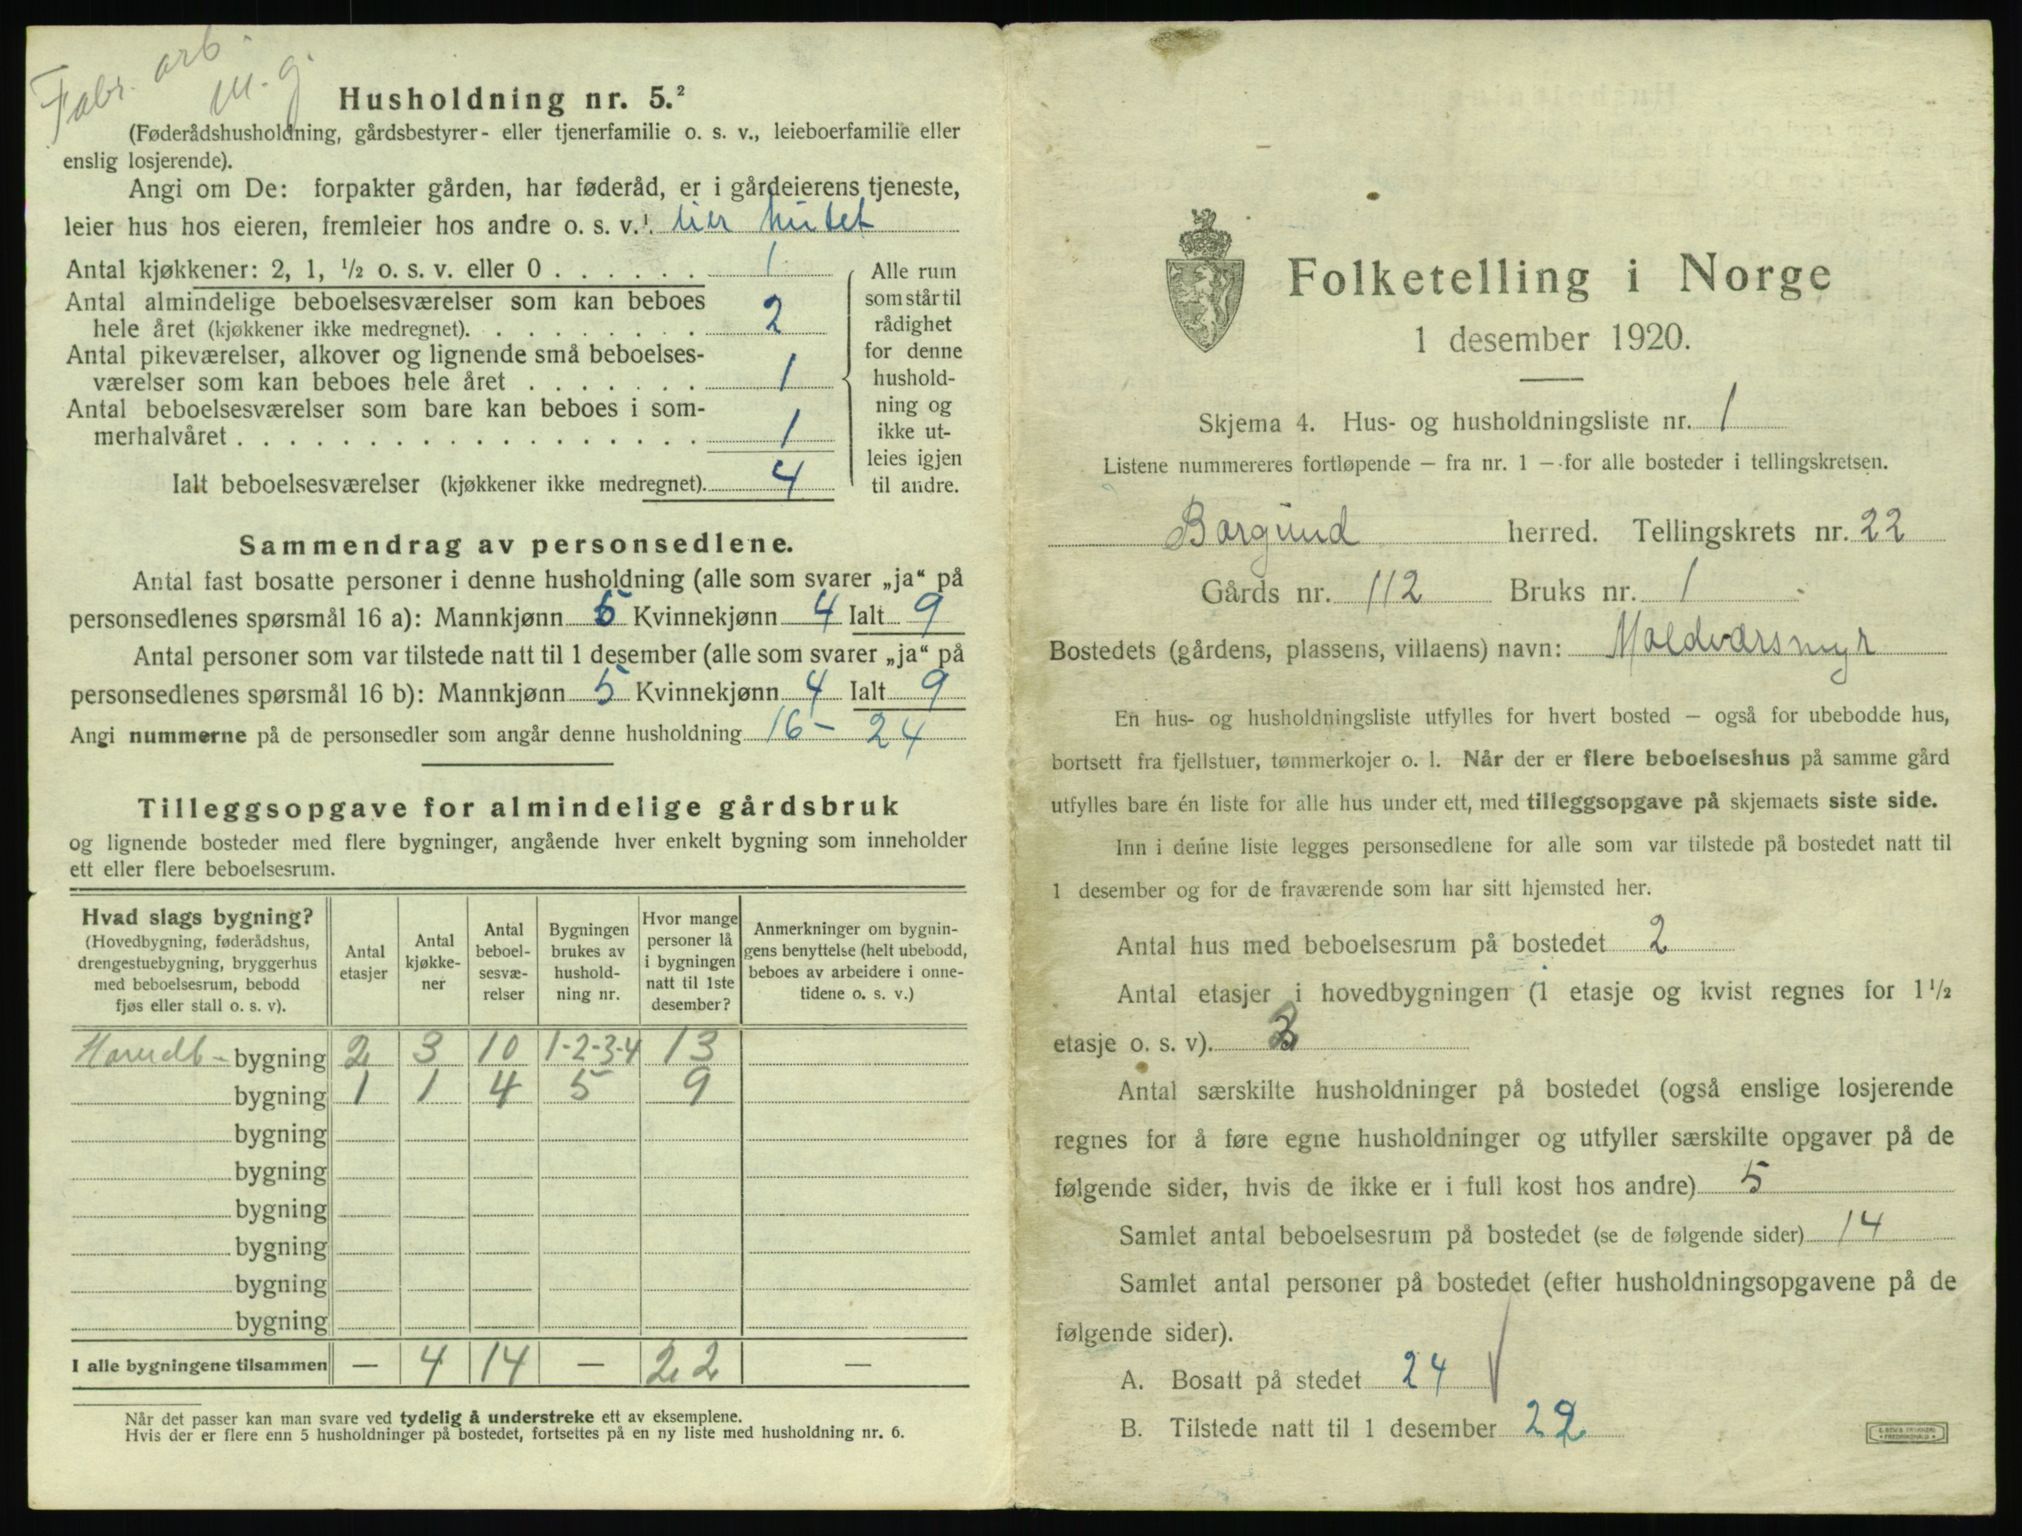 Fabr. arb
M. g.
Husholdning nr. 5.²
(Føderådshusholdning, gårdsbestyrer- eller tjenerfamilie o. s. v., leieboerfamilie eller
enslig losjerende).
Angi om De: forpakter gården, har føderåd, er i gårdeierens tjeneste,
leier hus hos eieren, fremleier hos andre o. s. v.¹. leier huset
Antal kjøkkener: 2, 1, ½ o. s. v. eller 0 . . . . . . 1
Antal almindelige beboelsesværelser som kan beboes
hele året (kjøkkener ikke medregnet). . . . . . . . . 2
Antal pikeværelser, alkover og lignende små beboelses-
værelser som kan beboes hele året . . . . . . . 1
Antal beboelsesværelser som bare kan beboes i som-
merhalvåret . . . . . . . . . . . . . . . . . . 1
Ialt beboelsesværelser (kjøkkener ikke medregnet). 4
Alle rum
som står til
rådighet
for denne
hushold-
ning og
ikke ut-
leies igjen
til andre.
Sammendrag av personsedlene.
Antal fast bosatte personer i denne husholdning (alle som svarer „ja“ på
personsedlenes spørsmål 16 a): Mannkjønn 5 Kvinnekjønn 4 Ialt 9
Antal personer som var tilstede natt til 1 desember (alle som svarer „ja“ på
personsedlenes spørsmål 16 b): Mannkjønn 5 Kvinnekjønn 4 Ialt 9
Angi nummerne på de personsedler som angår denne husholdning 16 - 24
Tilleggsopgave for almindelige gårdsbruk
og lignende bosteder med flere bygninger, angående hver enkelt bygning som inneholder
ett eller flere beboelsesrum.
Hvad slags bygning?
(Hovedbygning, føderådshus,
drengestuebygning, bryggerhus
med beboelsesrum, bebodd
fjøs eller stall o. s. v).
Antal
etasjer
Antal
kjøkke-
ner
Antal
beboel-
sesvæ-
relser
Bygningen
brukes av
hushold-
ning nr.
Hvor mange
personer lå
i bygningen
natt til 1ste
desember?
Anmerkninger om bygnin-
gens benyttelse (helt ubebodd,
beboes av arbeidere i onne-
tidene o. s. v.)
Hovedb- bygning 2 3 10 1-2-3-4 13
bygning 1 1 4 5 9
bygning
bygning
bygning
bygning
bygning
bygning
I alle bygningene tilsammen — 4 14 — 22 —
Når det passer kan man svare ved tydelig å understreke ett av eksemplene.
Hvis der er flere enn 5 husholdninger på bostedet, fortsettes på en ny liste med husholdning nr. 6.
Folketelling i Norge
1 desember 1920.
Skjema 4. Hus- og husholdningsliste nr. 1
Listene nummereres fortløpende — fra nr. 1 — for alle bosteder i tellingskretsen.
Borgund herred. Tellingskrets nr. 22
Gårds nr. 112 Bruks nr. 1
Bostedets (gårdens, plassens, villaens) navn: Moldværsmyr
En hus- og husholdningsliste utfylles for hvert bosted — også for ubebodde hus,
bortsett fra fjellstuer, tømmerkojer o. l. Når der er flere beboelseshus på samme gård
utfylles bare én liste for alle hus under ett, med tilleggsopgave på skjemaets siste side.
Inn i denne liste legges personsedlene for alle som var tilstede på bostedet natt til
1 desember og for de fraværende som har sitt hjemsted her.
Antal hus med beboelsesrum på bostedet 2
Antal etasjer i hovedbygningen (1 etasje og kvist regnes for 1½
etasje o. s. v).
Antal særskilte husholdninger på bostedet (også enslige losjerende
regnes for å føre egne husholdninger og utfyller særskilte opgaver på de
følgende sider, hvis de ikke er i full kost hos andre) 5
Samlet antal beboelsesrum på bostedet (se de følgende sider) 14
Samlet antal personer på bostedet (efter husholdningsopgavene på de
følgende sider).
A. Bosatt på stedet 24
B. Tilstede natt til 1 desember 22